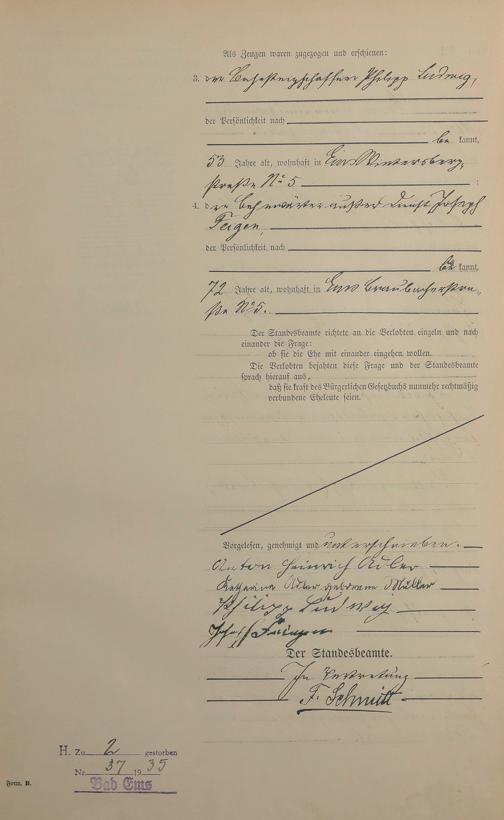 Als Zeugen waren zugezogen und erschienen:
3. der Philipp Ludwig,
der Persönlichkeit nach
be kannt,
53 Jahre alt, wohnhaft in Ems Wintersberg-
straße No 5 ;
4. der Bahnwärter außer Dienst Joseph
der Persönlichkeit nach
be kannt,
72 Jahre alt, wohnhaft in Ems Braubacherstra-
ße No 5.
Der Standesbeamte richtete an die Verlobten einzeln und nach
einander die Frage:
ob sie die Ehe mit einander eingehen wollen.
Die Verlobten bejahten diese Frage und der Standesbeamte
sprach hierauf aus,
daß sie kraft des Bürgerlichen Gesetzbuchs nunmehr rechtmäßig
verbundene Eheleute seien.
Vorgelesen, genehmigt und unterschrieben.
Anton Heinrich Adler
Katharina Adler geborene Müller
Philipp Ludwig
Der Standesbeamte.
In Vertretung
F. Schmitt
H. Zu 2 gestorben
Nr. 37 1935
Bad Ems
Form. B.